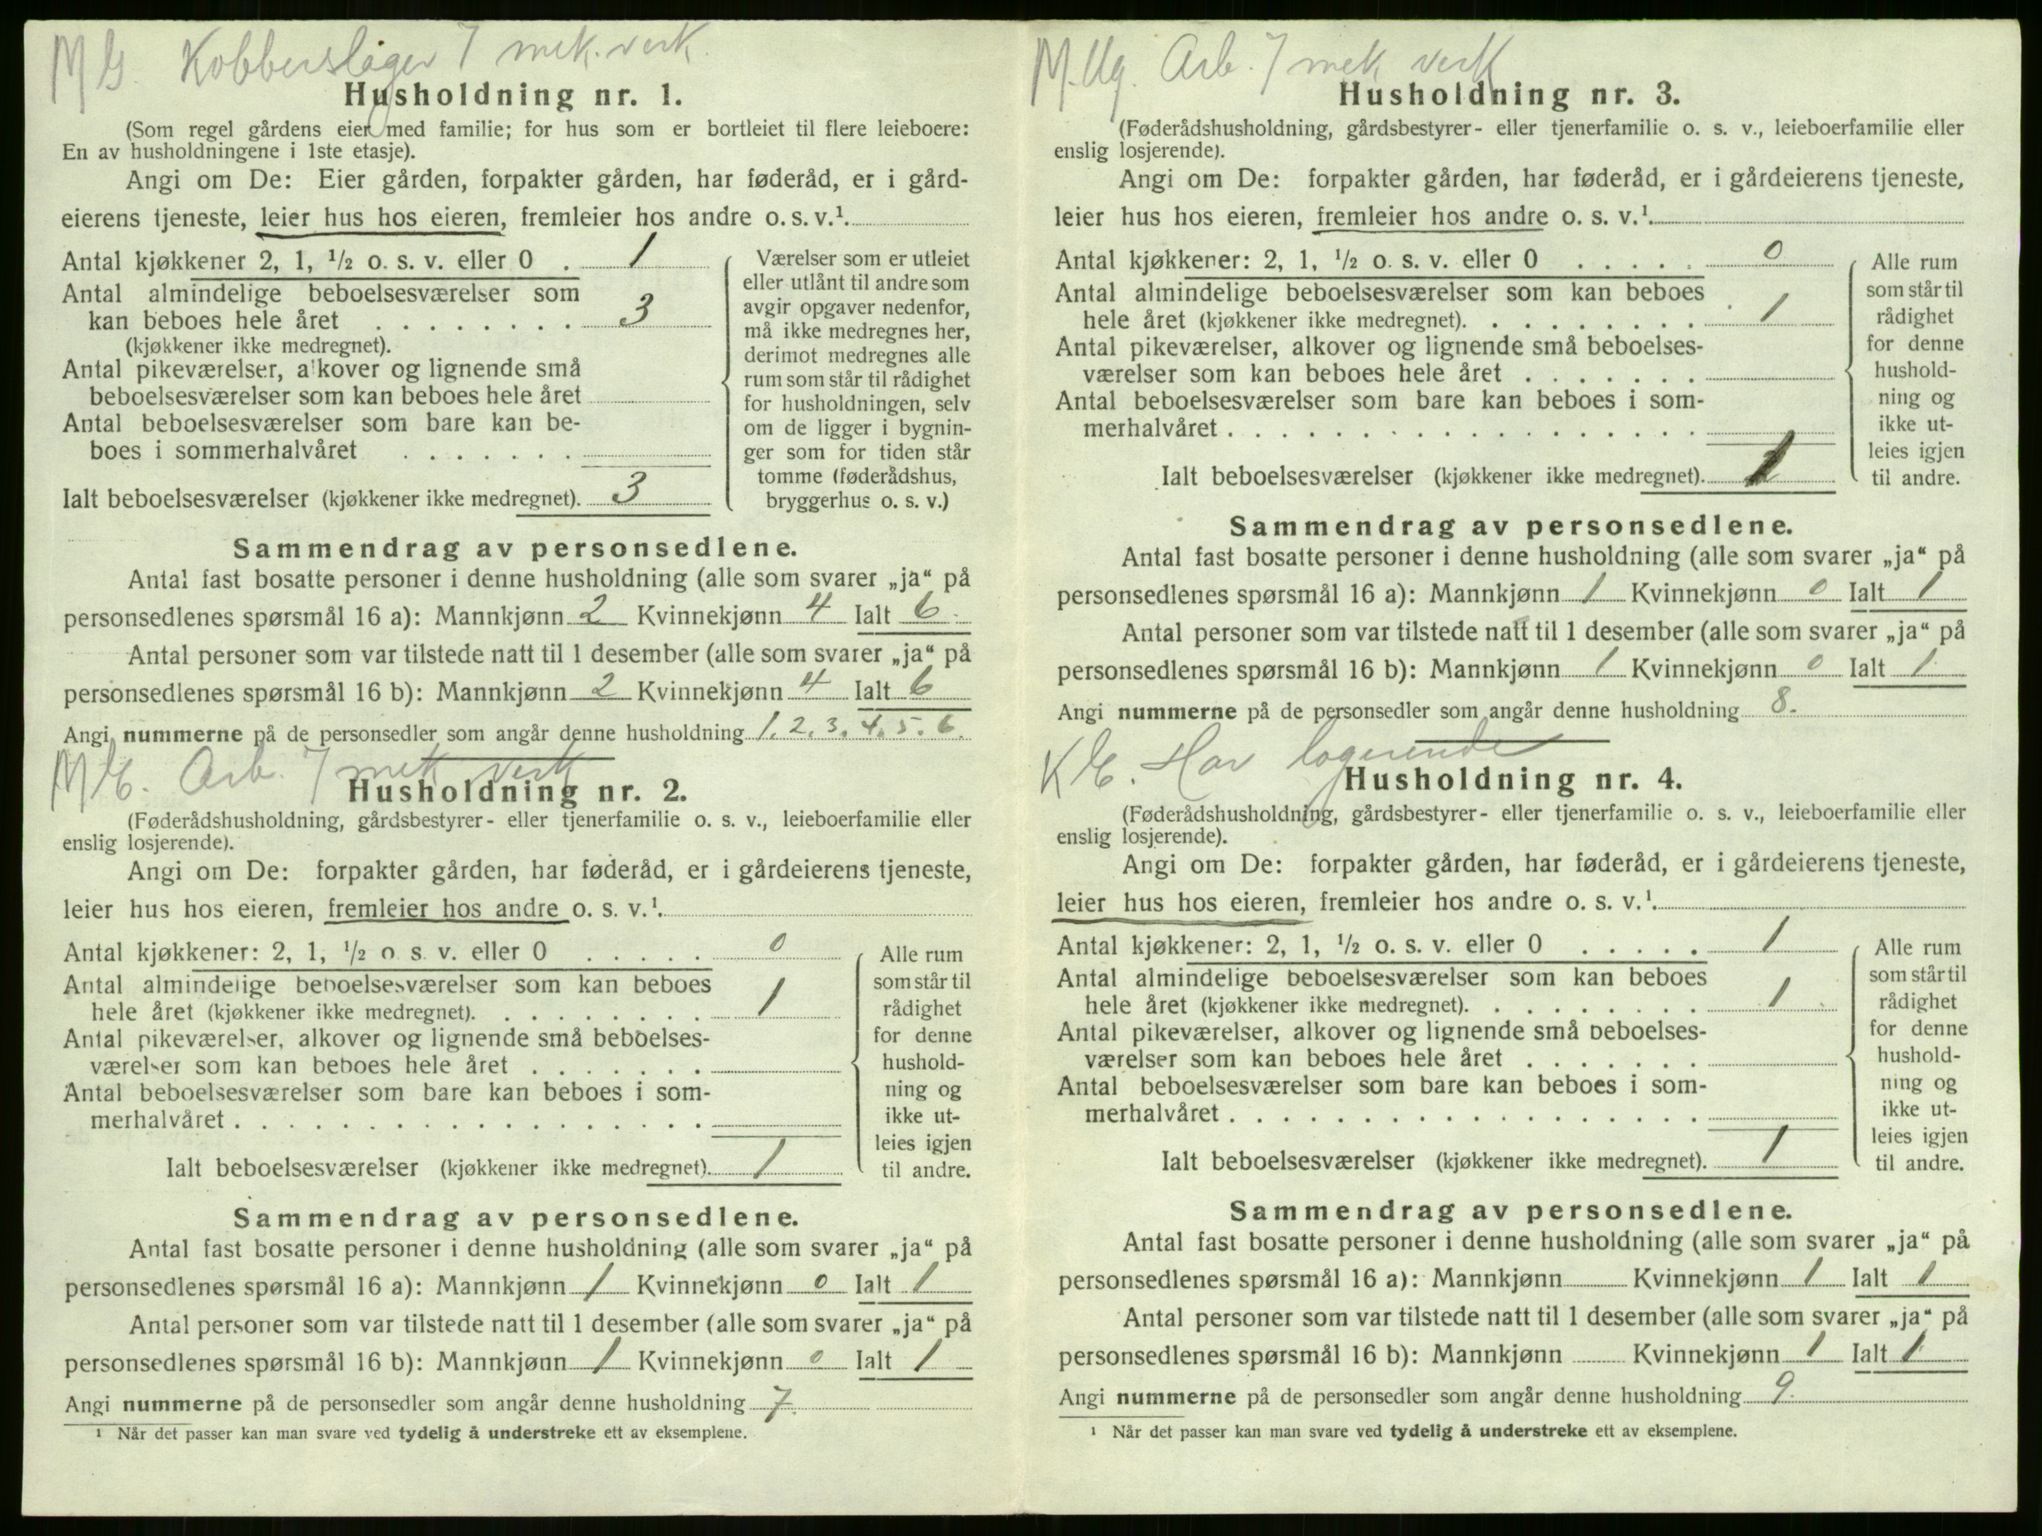 M G. Kobberslager 7 mek. verk.
Husholdning nr. 1.
(Som regel gårdens eier med familie; for hus som er bortleiet til flere leieboere:
En av husholdningene i 1ste etasje).
Angi om De: Eier gården, forpakter gården, har føderåd, er i gård-
eierens tjeneste, leier hus hos eieren, fremleier hos andre o. s. v.¹.
Antal kjøkkener 2, 1, ½ o. s. v. eller 0 . 1
Antal almindelige beboelsesværelser som
kan beboes hele året . . . . . . . . 3
(kjøkkener ikke medregnet).
Antal pikeværelser, alkover og lignende små
beboelsesværelser som kan beboes hele året
Antal beboelsesværelser som bare kan be-
boes i sommerhalvåret . . . . . . .
Ialt beboelsesværelser (kjøkkener ikke medregnet). 3
Værelser som er utleiet
eller utlånt til andre som
avgir opgaver nedenfor,
må ikke medregnes her,
derimot medregnes alle
rum som står til rådighet
for husholdningen, selv
om de ligger i bygnin-
ger som for tiden står
tomme (føderådshus,
bryggerhus o. s. v.)
Sammendrag av personsedlene.
Antal fast bosatte personer i denne husholdning (alle som svarer „ja“ på
personsedlenes spørsmål 16 a): Mannkjønn 2 Kvinnekjønn 4 Ialt 6
Antal personer som var tilstede natt til 1 desember (alle som svarer „ja“ på
personsedlenes spørsmål 16 b): Mannkjønn 2 Kvinnekjønn 4 Ialt 6
Angi nummerne på de personsedler som angår denne husholdning 1. 2. 3. 4. 5. 6.
M E. Arb. 7 mek verk
Husholdning nr. 2.
(Føderådshusholdning, gårdsbestyrer- eller tjenerfamilie o. s. v., leieboerfamilie eller
enslig losjerende).
Angi om De: forpakter gården, har føderåd, er i gårdeierens tjeneste,
leier hus hos eieren, fremleier hos andre o. s. v.¹.
Antal kjøkkener: 2, 1, ½ o. s. v. eller 0 . . . . . 0
Antal almindelige beboelsesværelser som kan beboes
hele året (kjøkkener ikke medregnet). . . . . . . . . 1
Antal pikeværelser, alkover og lignende små beboelses-
værelser som kan beboes hele året . . . . . . .
Antal beboelsesværelser som bare kan beboes i som-
merhalvåret . . . . . . . . . . . . . . . . . .
Ialt beboelsesværelser (kjøkkener ikke medregnet). 1
Alle rum
som står til
rådighet
for denne
hushold-
ning og
ikke ut-
leies igjen
til andre.
Sammendrag av personsedlene.
Antal fast bosatte personer i denne husholdning (alle som svarer „ja“ på
personsedlenes spørsmål 16 a): Mannkjønn 1 Kvinnekjønn 0 Ialt 1
Antal personer som var tilstede natt til 1 desember (alle som svarer „ja“ på
personsedlenes spørsmål 16 b): Mannkjønn 1 Kvinnekjønn 0 Ialt 1
Angi nummerne på de personsedler som angår denne husholdning 7.
¹ Når det passer kan man svare ved tydelig å understreke ett av eksemplene.
M. Ug. Arb. 7 mek verk
Husholdning nr. 3.
(Føderådshusholdning, gårdsbestyrer- eller tjenerfamilie o. s. v., leieboerfamilie eller
enslig losjerende).
Angi om De: forpakter gården, har føderåd, er i gårdeierens tjeneste,
leier hus hos eieren, fremleier hos andre o. s. v.¹.
Antal kjøkkener: 2, 1, ½ o. s. v. eller 0 . . . . . 0
Antal almindelige beboelsesværelser som kan beboes
hele året (kjøkkener ikke medregnet). . . . . . . . . 1
Antal pikeværelser, alkover og lignende små beboelses-
værelser som kan beboes hele året . . . . . . .
Antal beboelsesværelser som bare kan beboes i som-
merhalvåret . . . . . . . . . . . . . . . . . .
Ialt beboelsesværelser (kjøkkener ikke medregnet). 1
Alle rum
som står til
rådighet
for denne
hushold-
ning og
ikke ut-
leies igjen
til andre.
Sammendrag av personsedlene.
Antal fast bosatte personer i denne husholdning (alle som svarer „ja“ på
personsedlenes spørsmål 16 a): Mannkjønn 1 Kvinnekjønn 0 Ialt 1
Antal personer som var tilstede natt til 1 desember (alle som svarer „ja“ på
personsedlenes spørsmål 16 b): Mannkjønn 1 Kvinnekjønn 0 Ialt 1
Angi nummerne på de personsedler som angår denne husholdning 8.
K E. Har logerende
Husholdning nr. 4.
(Føderådshusholdning, gårdsbestyrer- eller tjenerfamilie o. s. v., leieboerfamilie eller
enslig losjerende).
Angi om De: forpakter gården, har føderåd, er i gårdeierens tjeneste,
leier hus hos eieren, fremleier hos andre o. s. v.¹.
Antal kjøkkener: 2, 1, ½ o. s. v. eller 0 . . . . . 1
Antal almindelige beboelsesværelser som kan beboes
hele året (kjøkkener ikke medregnet). . . . . . . . . 1
Antal pikeværelser, alkover og lignende små beboelses-
værelser som kan beboes hele året . . . . . . .
Antal beboelsesværelser som bare kan beboes i som-
merhalvåret . . . . . . . . . . . . . . . . . .
Ialt beboelsesværelser (kjøkkener ikke medregnet). 1
Alle rum
som står til
rådighet
for denne
hushold-
ning og
ikke ut-
leies igjen
til andre.
Sammendrag av personsedlene.
Antal fast bosatte personer i denne husholdning (alle som svarer „ja“ på
personsedlenes spørsmål 16 a): Mannkjønn Kvinnekjønn 1 Ialt 1
Antal personer som var tilstede natt til 1 desember (alle som svarer „ja“ på
personsedlenes spørsmål 16 b): Mannkjønn Kvinnekjønn 1 Ialt 1
Angi nummerne på de personsedler som angår denne husholdning 9.
¹ Når det passer kan man svare ved tydelig å understreke ett av eksemplene.